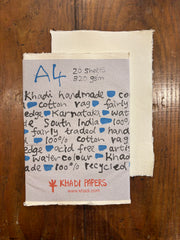 A4
20 sheets
320 gsm
Khadi handmade co
cotton rag fairly
edge Karnataka wat
e South India 100%
fairly traded hand
n 100% cotton rag
edge acid free artis
water-colour Khad
ade 100% recycled
KHADI PAPERS
www.khadi.com